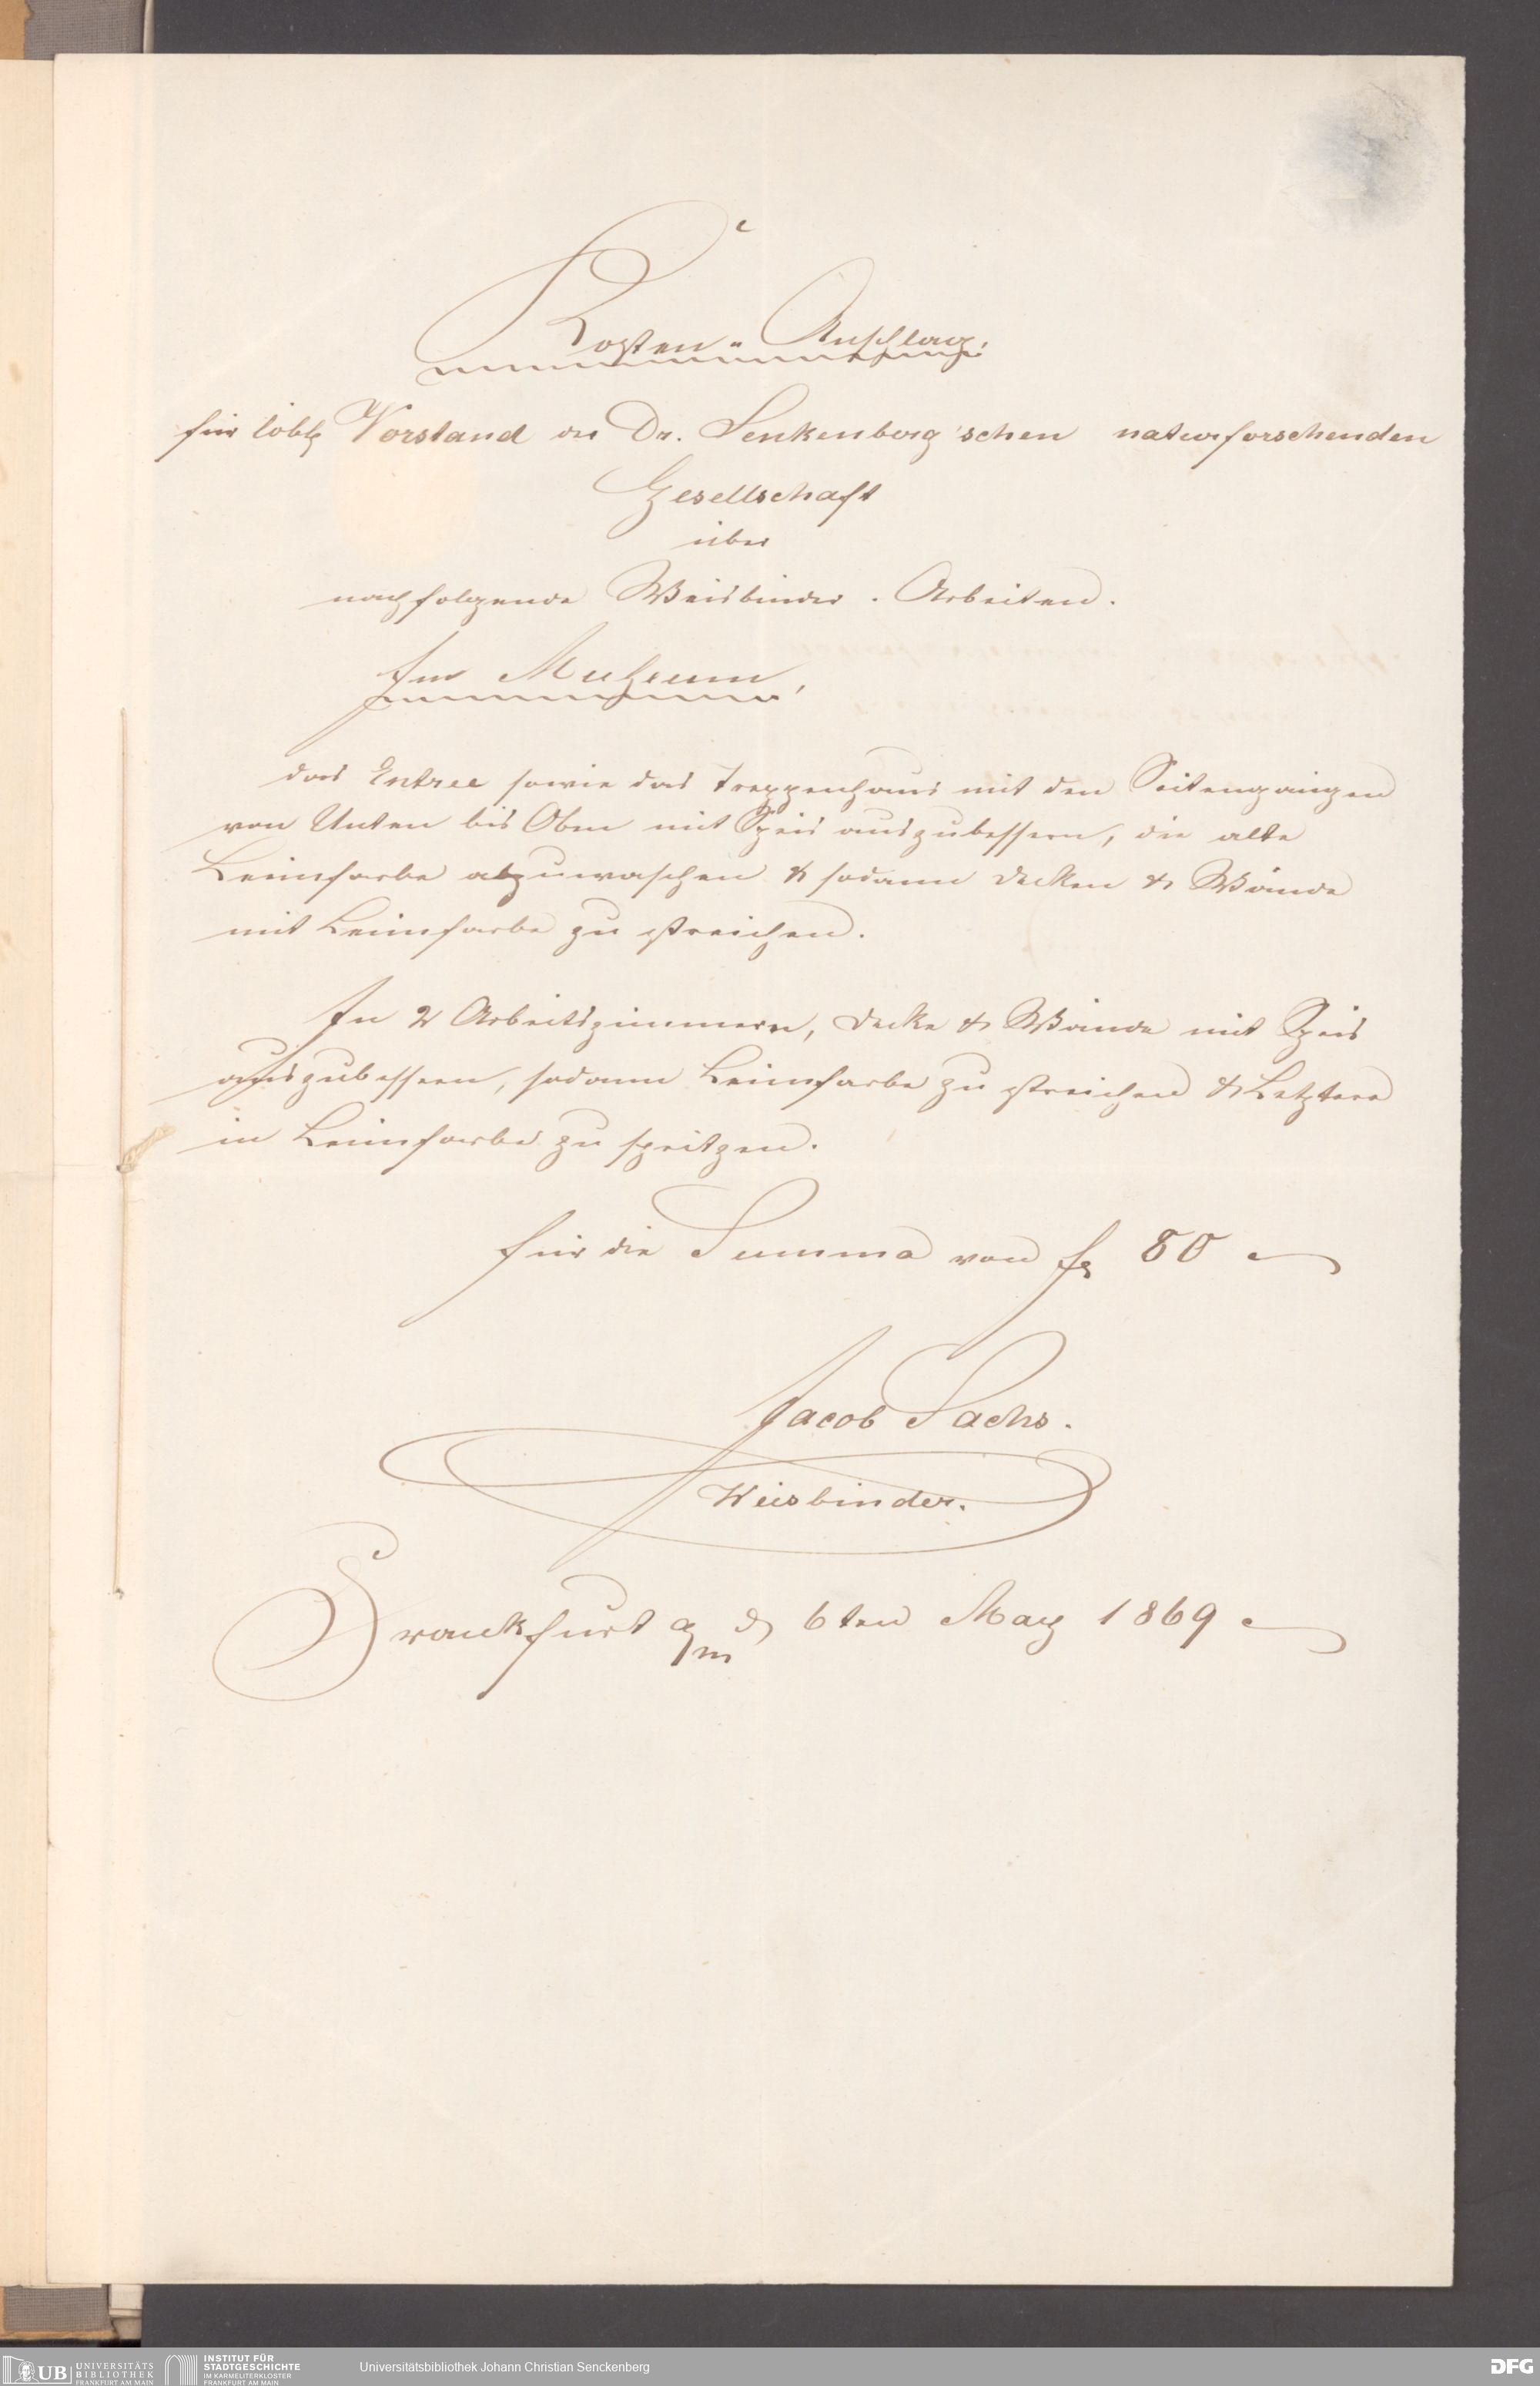 Kosten-Anschlag,
für löbl Vorstand der Dr. Senkenberg'schen naturforschenden
Gesellschaft
über
nachfolgende Weisbinder-Arbeiten.
Im Mußeum,
das Entree sowie das Treppenhaus mit den Seitengängen
von Unten bis Oben mit Speis auszubessern, die alte
Leimfarbe abzuwaschen & sodann Decken & Wände
mit Leimfarbe zu streichen.
In 2 Arbeitszimmern, Decke & Wände mit Speis
auszubessern, sodann Leimfarbe zu streichen & Letztere
in Leimfarbe zu spritzen.
für die Summa von f 80
Jacob Sachs.
Weisbinder.
Frankfurt a/m d 6ten May 1869
UB UNIVERSITÄTS BIBLIOTHEK FRANKFURT AM MAIN
INSTITUT FÜR STADTGESCHICHTE IM KARMELITERKLOSTER FRANKFURT AM MAIN
Universitätsbibliothek Johann Christian Senckenberg
DFG